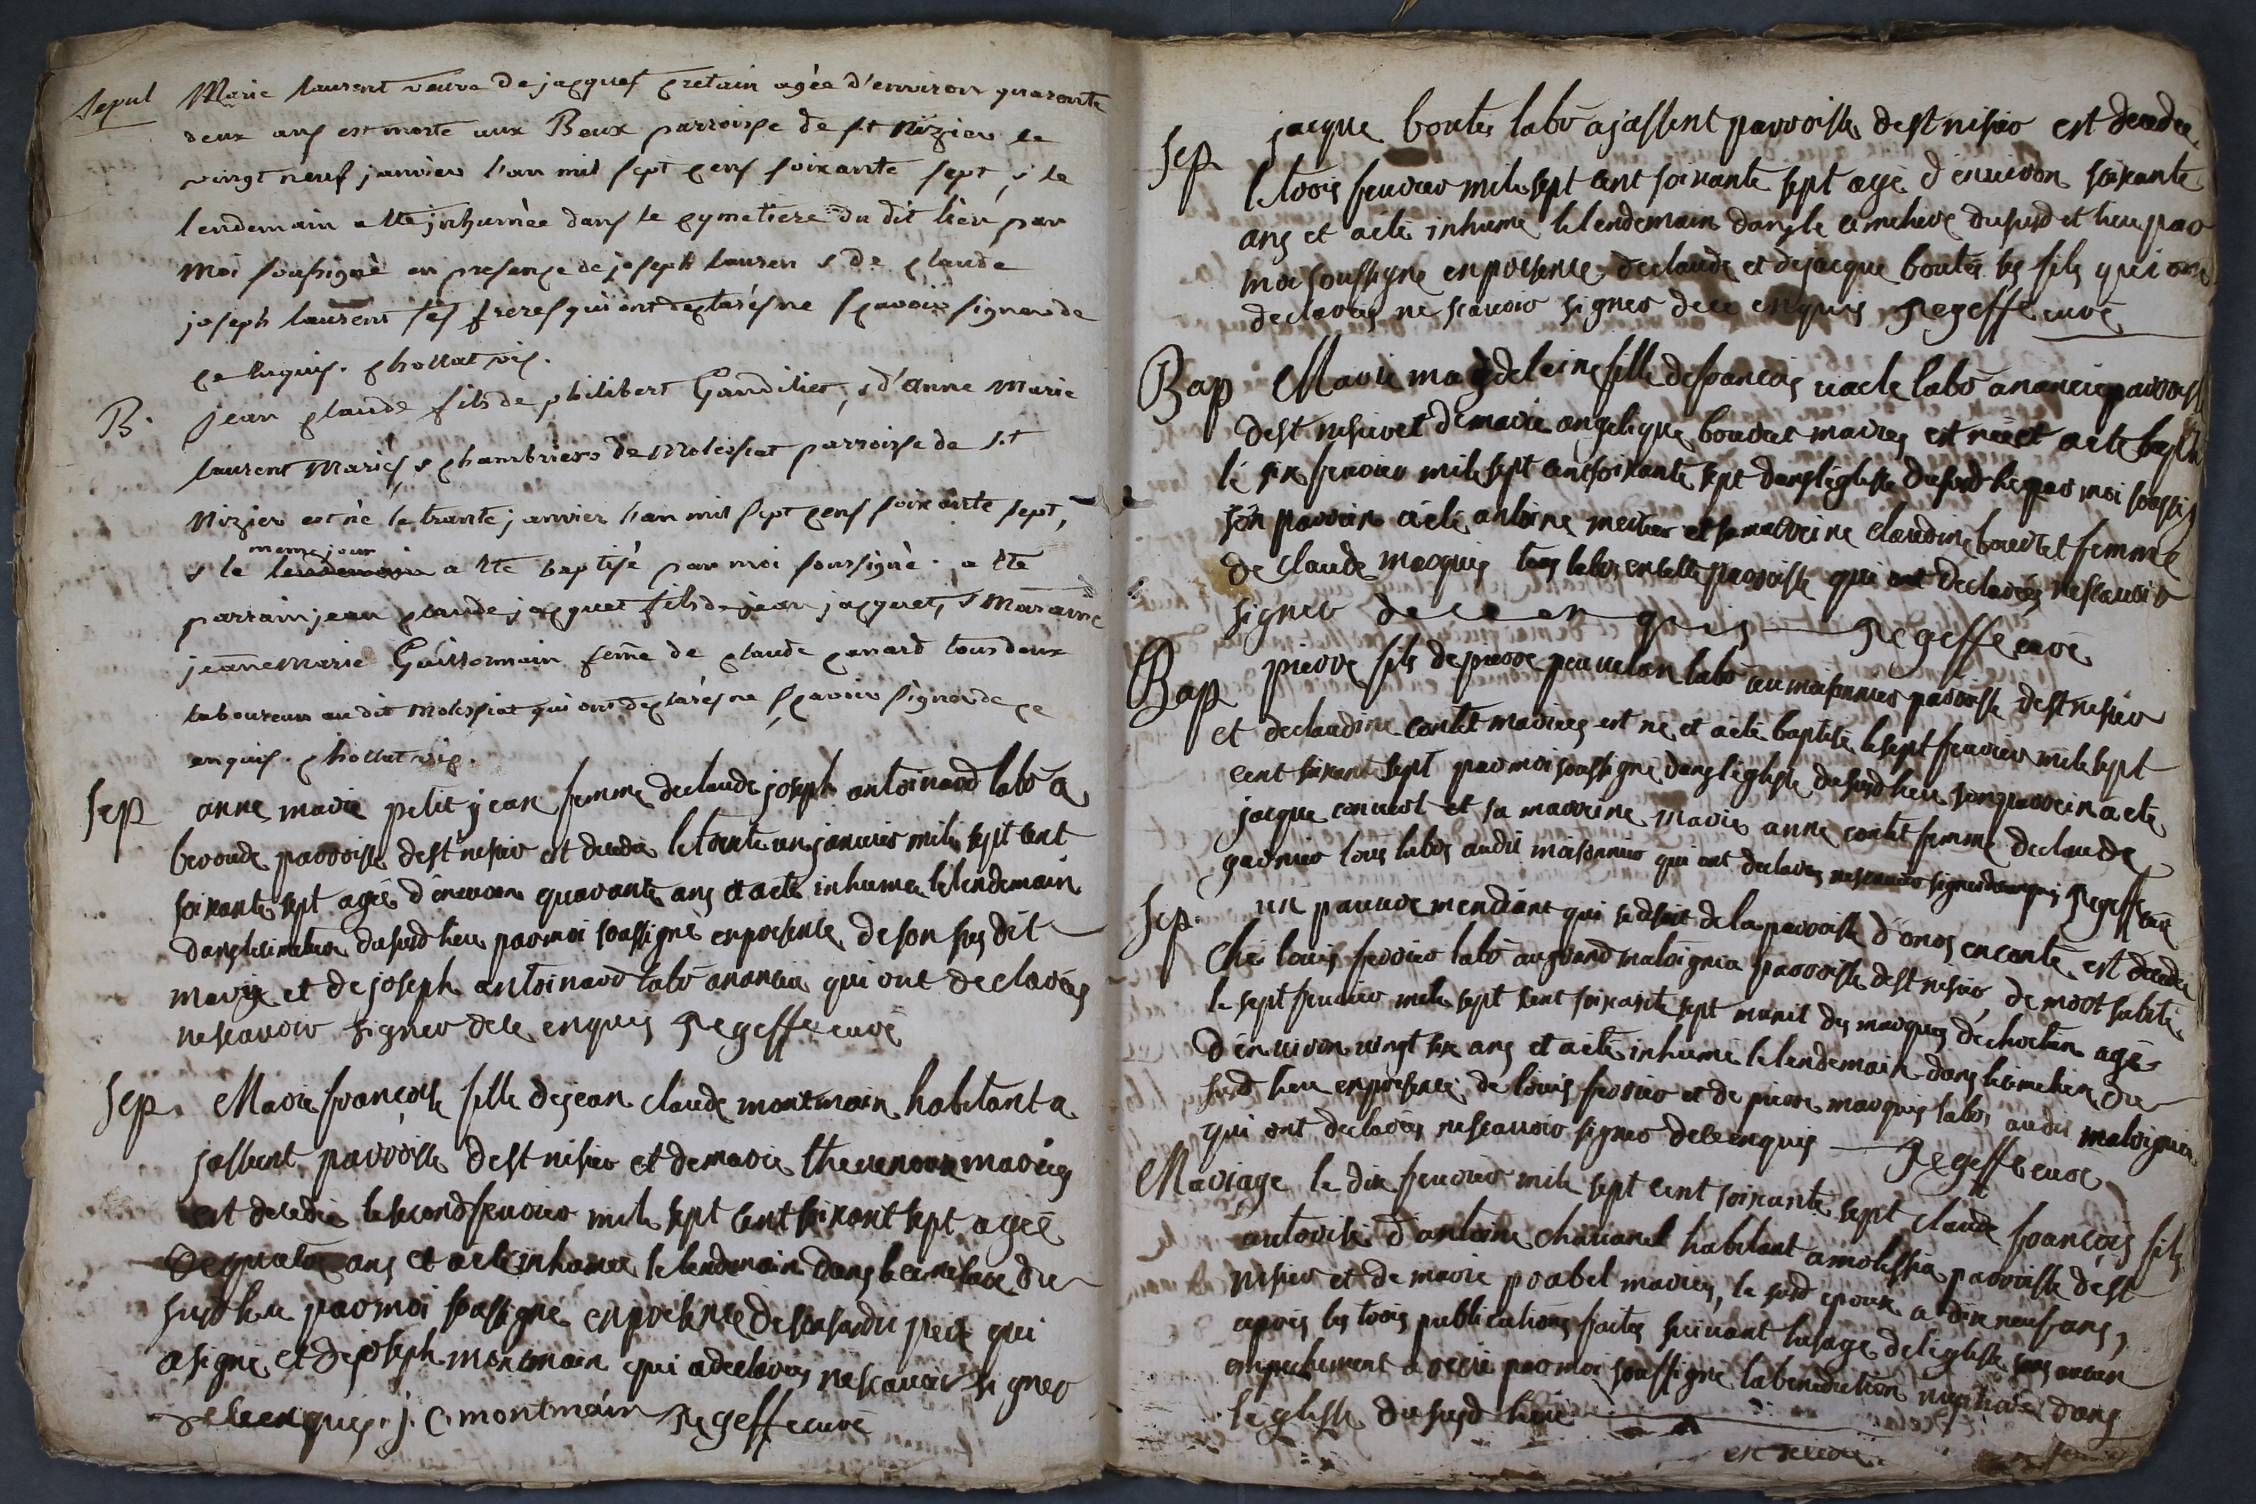 Sepul Marie laurent veuve de jacques cretain agée d'environ quarante
deux ans est morte aux Baux parroisse de st Nizier le
vingt neuf janvier l'an mil sept cens soixante sept, & le
lendemain a ete inhumèe dans le cymetiere du dit lieu par
moi soussigné en presence de joseph lauren & de claude
joseph laurent ses freres qui ont declarés ne scavoir signer de
ce enquis. chollat vic.
B. jean claude fils de philibert Gandilier, & d'anne Marie
laurent Mariés & chambriers de Molessiat parroisse de st
Nizier est né le trante janvier l'an mil sept cens soixante sept,
meme jour
& le lendemain a ete baptisé par moi soussigné. a ete
parrain jean claude jacquet fils de jean jacquet, & Maraine
jeanne Marie Guissormain feme de claude canard tous deux
laboureurs au dit Molessiat qui ont declarés ne scavoir signer de ce
enquis. chollat vic.
Sep anne marie petit jean femme de claude joseph antoinard labr a
beroude parroisse de st nisier est decedée le trante un janvier mile sept cent
soixante sept agée d'environ quarante ans et a eté inhumée le lendemain
dans le cimetiere du susd lieu par moi soussigné en presence de son sus dit
mary et de joseph antoinard labr anancia qui ont declarés
ne scavoir signer de ce enquis gegeffe curé
Sep. Marie françoise fille de jean claude montmain habitant a
jassent parroisse de st nisier et de marie thevenoux mariés
est decedée le second fevrier mile sept cent soixant sept agée
de quatre ans et a eté inhumée le lendemain dans le cimetiere du
susd lieu par moi soussigné en presence de son susdit pere qui
a signé et de joseph montmain qui a declarés ne scavoir signer
de ce enquis. j. c. montmain gegeffe curé
Sep jacque boutes labr a jassent parroisse de st nisier est decedé
le trois fevrier mile sept cent soixante sept agé d'environ soixante
ans et a eté inhumé le lendemain dans le cimetiere du susd et lieu par
moi soussigné en presence de claude et de jacque boutés ses fils qui ont
declarés ne scavoir signer de ce enquis gegeffe curé
Bap Marie magdeleine fille de françois uacle labr anancia parroisse
de st nisier et de marie angelique boudet mariés est née et a eté baptisée
le six fevrier mile sept cent soixante sept dans l'eglise du susd lieu par moi soussigné
son parrain a eté antoine metier et sa marreine claudine bourtet femme
de claude marquis tous labrs en cette parroisse qui ont declarés ne scavoir
signer de ce enquis gegeffe curé
Bap pierre fils de pierre peuuelan labr au maisonnier parroisse de st nisier
et de claudine contet mariés est né et a eté baptisé le sept fevrier mile sept
cent soixant sept par moi soussigné dans l'eglise du susd lieu son parrein a eté
jacque conuert et sa marreine marie anne contet femme de claude
garnier tous labrs au dit maisonnier qui ont declarés ne scavoir signer de ce enquis gegeffe curé
Sep. un pauvre mendiant qui se disoit de la parroisse d'oros en conte est decedé
ché louis ferrier labr au grand maloignia parroisse de st nisier, de mort subite
le sept fevrier mile sept cent soixante sept munit des marques de chretien agé
d'environ vingt six ans et a eté inhumé le lendemain dans le cimetiere du
susd lieu en presence de louis ferrier et de pierre marquis labrs au dit maloignia
qui ont declarés ne scavoir signer de ce enquis gegeffe curé
Mariage le dix fevrier mile sept cent soixante sept claude françois fils
autorisé d'antoine chauanel habitant a molessia parroisse de st
nisier et de marie prabel mariés, le susd epoux a dix neuf ans,
apres les trois publications faites suivant lusage de l'eglise sans aucun
empechement a recu par moi soussigné la benediction nuptiale dans
l'eglise du susd lieu